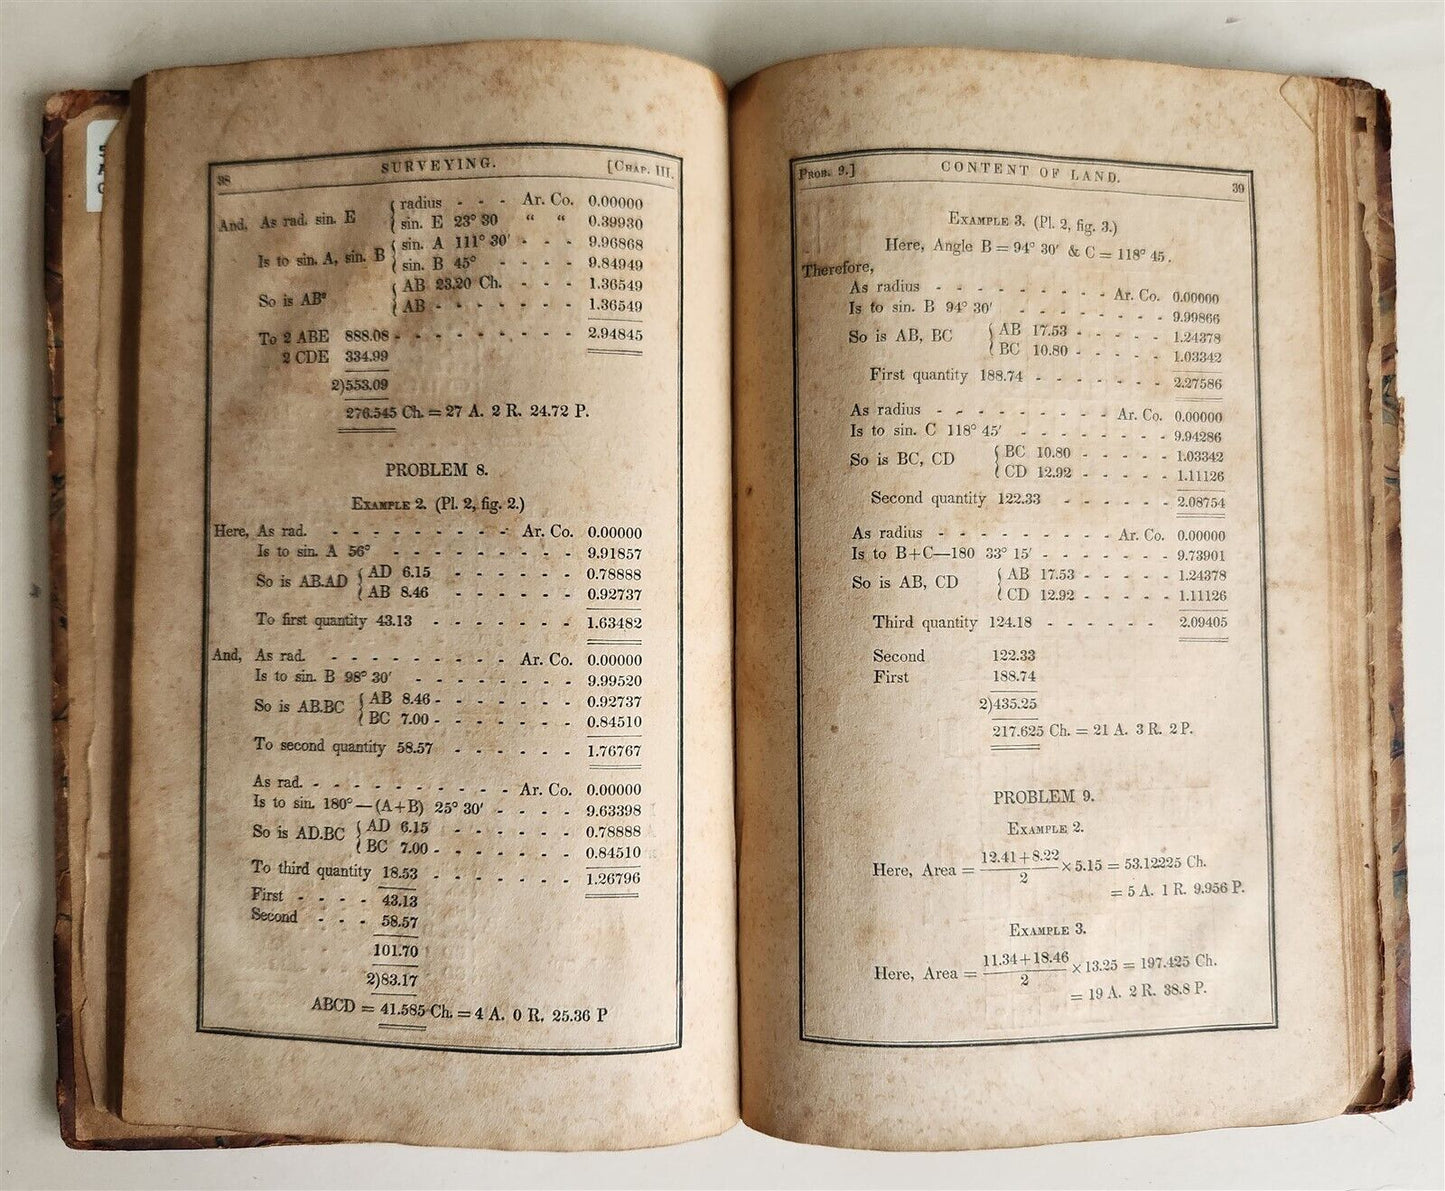 38 SURVEYING. [CHAP. III.
And, As rad. sin. E { radius - - - Ar. Co. 0.00000
sin. E 23° 30 “ “ 0.39930
Is to sin. A, sin. B { sin. A 111° 30′ - - - 9.96868
sin. B 45° - - - - 9.84949
So is AB² { AB 23.20 Ch. - - - 1.36549
AB - - - - - - - 1.36549
To 2 ABE 888.08 - - - - - - - - - 2.94845
2 CDE 334.99
2)553.09
276.545 Ch. = 27 A. 2 R. 24.72 P.
PROBLEM 8.
EXAMPLE 2. (Pl. 2, fig. 2.)
Here, As rad. - - - - - - - - - Ar. Co. 0.00000
Is to sin. A 56° - - - - - - - - - 9.91857
So is AB.AD { AD 6.15 - - - - - - 0.78888
AB 8.46 - - - - - - 0.92737
To first quantity 43.13 - - - - - - - 1.63482
And, As rad. - - - - - - - - - Ar. Co. 0.00000
Is to sin. B 98° 30′ - - - - - - - - 9.99520
So is AB.BC { AB 8.46 - - - - - - - 0.92737
BC 7.00 - - - - - - - 0.84510
To second quantity 58.57 - - - - - - 1.76767
As rad. - - - - - - - - - - Ar. Co. 0.00000
Is to sin. 180° — (A+B) 25° 30′ - - - - 9.63398
So is AD.BC { AD 6.15 - - - - - - 0.78888
BC 7.00 - - - - - - - 0.84510
To third quantity 18.53 - - - - - - - 1.26796
First - - - - 43.13
Second - - - 58.57
101.70
2)83.17
ABCD = 41.585 Ch. = 4 A. 0 R. 25.36 P
PROB. 9.] CONTENT OF LAND. 39
EXAMPLE 3. (Pl. 2, fig. 3.)
Here, Angle B = 94° 30′ & C = 118° 45.
Therefore,
As radius - - - - - - - - - Ar. Co. 0.00000
Is to sin. B 94° 30′ - - - - - - - - 9.99866
So is AB, BC { AB 17.53 - - - - - 1.24378
BC 10.80 - - - - - 1.03342
First quantity 188.74 - - - - - - - 2.27586
As radius - - - - - - - - - Ar. Co. 0.00000
Is to sin. C 118° 45′ - - - - - - - - 9.94286
So is BC, CD { BC 10.80 - - - - - 1.03342
CD 12.92 - - - - - 1.11126
Second quantity 122.33 - - - - - - 2.08754
As radius - - - - - - - - - Ar. Co. 0.00000
Is to B+C—180 33° 15′ - - - - - - - 9.73901
So is AB, CD { AB 17.53 - - - - - 1.24378
CD 12.92 - - - - - 1.11126
Third quantity 124.18 - - - - - - 2.09405
Second 122.33
First 188.74
2)435.25
217.625 Ch. = 21 A. 3 R. 2 P.
PROBLEM 9.
EXAMPLE 2.
Here, Area = 12.41+8.22/2 × 5.15 = 53.12225 Ch.
= 5 A. 1 R. 9.956 P.
EXAMPLE 3.
Here, Area = 11.34+18.46/2 × 13.25 = 197.425 Ch.
= 19 A. 2 R. 38.8 P.